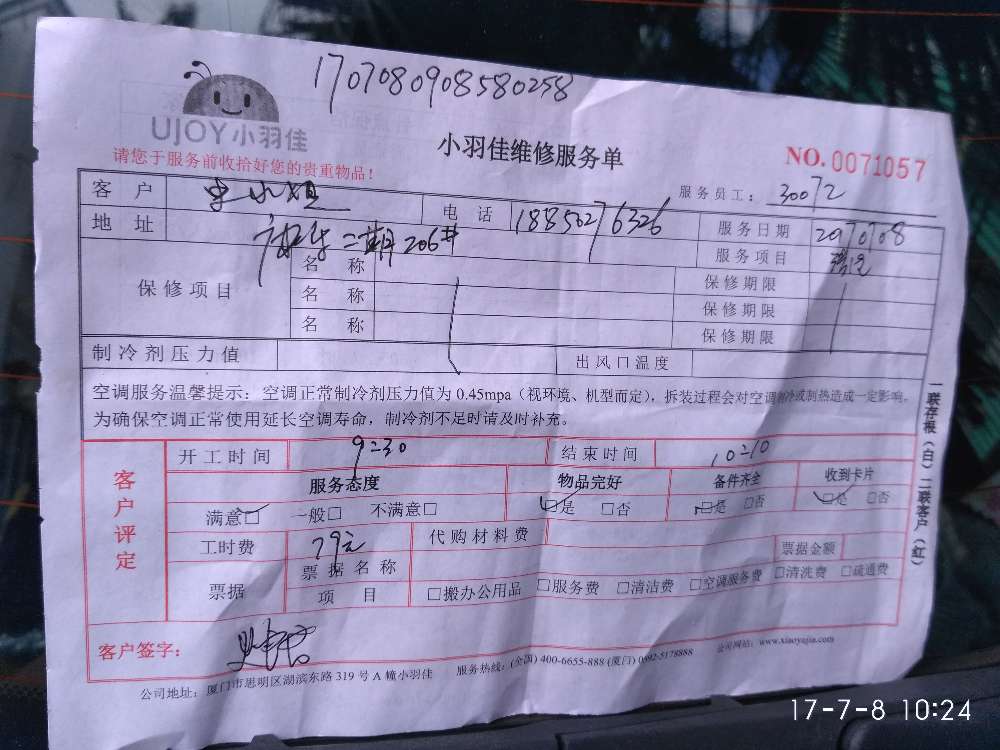 1707080908580258
UJOY小羽佳
小羽佳维修服务单
NO.0071057
请您于服务前收拾好您的贵重物品!
服务员工: 30072
客 户 史小姐 电 话 18850276326 服务日期 20170708
地 址 二期206# 服务项目
保修项目 名 称 保修期限
名 称 保修期限
名 称 保修期限
制冷剂压力值 出风口温度
空调服务温馨提示:空调正常制冷剂压力值为 0.45mpa(视环境、机型而定),拆装过程会对空调制冷或制热造成一定影响。
为确保空调正常使用延长空调寿命,制冷剂不足时请及时补充。
一联存根(白)二联客户(红)
客户评定
开工时间 9:30 结束时间 10:10
服务态度 物品完好 备件齐全 收到卡片
满意□ 一般□ 不满意□ □是 □否 □是 □否 □是 □否
工时费 79元 代购材料费
票据 票据名称 票据金额
项 目 □搬办公用品 □服务费 □清洁费 □空调服务费 □清洗费 □疏通费
客户签字:
公司地址:厦门市思明区湖滨东路 319 号 A 幢小羽佳 服务热线:(全国) 400-6655-888 (厦门) 0592-5178888 公司网站:www.xiaoyujia.com
17-7-8 10:24